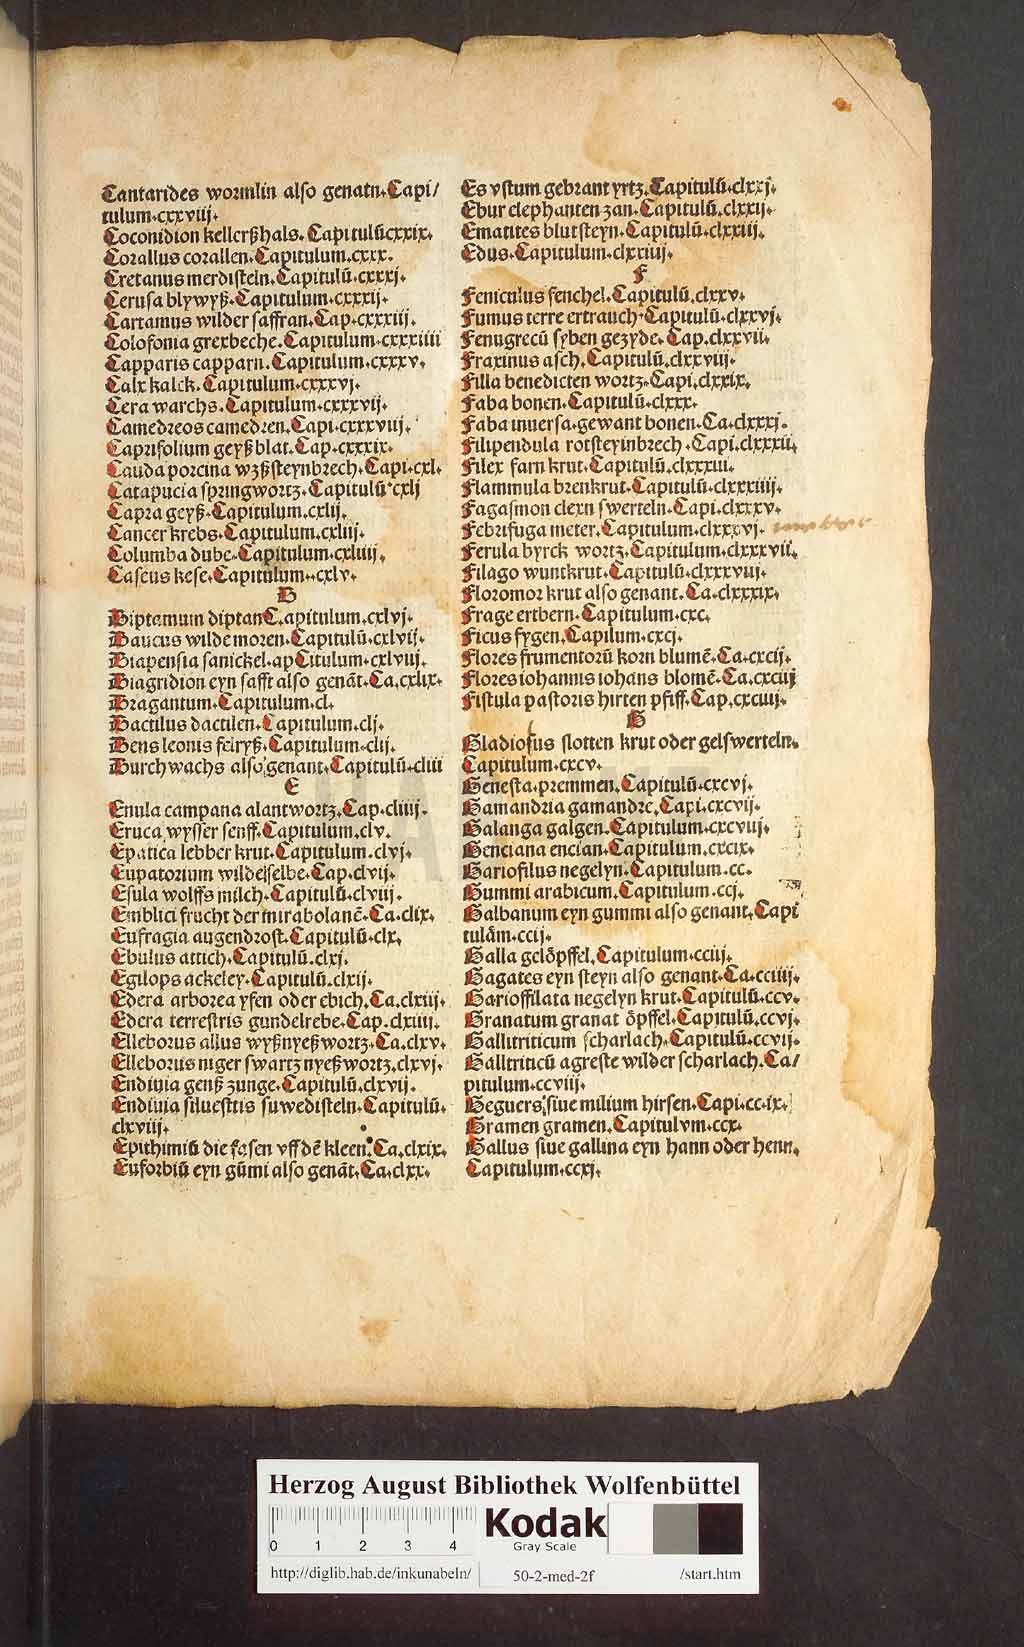 Cantarides wormlin also genatn. Capi/
tulum.cxxviij.
Coconidion kellerßhals. Capitulū cxxix.
Corallus corallen. Capitulum.cxxx.
Cretanus merdisteln. Capitulū.cxxxj.
Cerusa blywyß. Capitulum.cxxxij.
Cartamus wilder saffran. Cap.cxxxiij.
Colofonia grexbeche. Capitulum.cxxxiiij
Capparis capparn. Capitulum.cxxxv.
Calx kalck. Capitulum.cxxxvj.
Cera warchs. Capitulum.cxxxvij.
Camedreos camedren. Capi.cxxxviij.
Caprifolium geyßblat. Cap.cxxxix.
Cauda porcina wzßsteynbrech. Capi.cxl.
Catapucia springwortz. Capitulū.cxlj
Capra geyß. Capitulum.cxlij.
Cancer krebs. Capitulum.cxliij.
Columba dube. Capitulum.cxliiij.
Caseus kese. Capitulum.cxlv.
D
Diptamum diptanC.apitulum.cxlvj.
Daucus wilde moren. Capitulū.cxlvij.
Diapensia sanickel.apCitulum.cxlviij.
Diagridion eyn safft also genāt. Ca.cxlix.
Dragantum. Capitulum.cl.
Dactilus dactilen. Capitulum.clj.
Dens leonis feiryß. Capitulum.clij.
Durch wachs also genant. Capitulū.cliii
E
Enula campana alantwortz. Cap.cliiij.
Eruca wysser senff. Capitulum.clv.
Epatica lebber krut. Capitulum.clvj.
Eupatorium wilde selbe. Cap.clvij.
Esula wolffs milch. Capitulū.clviij.
Emblici frucht der mirabolanē. Ca.clix.
Eufragia augendrost. Capitulū.clx.
Ebulus attich. Capitulū.clxj.
Egilops ackeley. Capitulū.clxij.
Edera arborea yfen oder ebich. Ca.clxiij.
Edera terrestris gundelrebe. Cap.clxiiij.
Elleborus allus wyßnyeßwortz. Ca.clxv.
Elleborus niger swartz nyeßwortz.clxvj.
Endiuia genß zunge. Capitulū.clxvij.
Endiuia siluesttis suwedisteln. Capitulū.
clxviij.
Epithimiū die fasen vff dē kleen. Ca.clxix.
Euforbiū eyn gūmi also genāt. Ca.clxx.
Es vstum gebrant yrtz. Capitulū.clxxj.
Ebur elephanten zan. Capitulū.clxxij.
Ematites blutsteyn. Capitulū.clxxiij.
Edus. Capitulum.clxxiiij.
F
Feniculus fenchel. Capitulū.clxxv.
Fumus terre ertrauch. Capitulū.clxxvj.
Fenugrecū syben gezyde. Cap.clxxvij.
Fraxinus asch. Capitulū.clxxviij.
Filla benedicten wortz. Capi.clxxix.
Faba bonen. Capitulū.clxxx.
Faba inuersa.gewant bonen. Ca.clxxxj.
Filipendula rotsteyinbrech. Capi.clxxxii.
Filex farn krut. Capitulū.clxxxiii.
Flammula brenkrut. Capitulū.clxxxiiij.
Fagasmon clexn swerteln. Capi.clxxxv.
Febrifuga meter. Capitulum.clxxxvj.
Ferula byrck wortz. Capitulum.clxxxvii.
Filago wuntkrut. Capitulū.clxxxviij.
Floromor krut also genant. Ca.clxxxix.
Frage ertbern. Capitulum.cxc.
Ficus fygen. Capilum.cxcj.
Flores frumentorū korn blumē. Ca.cxcij.
Flores iohannis iohans blomē. Ca.cxciij
Fistula pastoris hirten pfiff. Cap.cxciiij.
G
Gladiosus slotten krut oder gelswerteln.
Capitulum.cxcv.
Genesta.premmen. Capitulū.cxcvj.
Gamandria gamandre. Capi.cxcvij.
Galanga galgen. Capitulum.cxcviij.
Genciana encian. Capitulum.cxcix.
Gariofilus negelyn. Capitulum.cc.
Gummi arabicum. Capitulum.ccj.
Galbanum eyn gummi also genant. Capi
tulām.ccij.
Galla gelōpffel. Capitulum.cciij.
Gagates eyn steyn also genant. Ca.cciiij.
Garioffilata negelyn krut. Capitulū.ccv.
Granatum granat ōpffel. Capitulū.ccvj.
Gallitriticum scharlach. Capitulū.ccvij.
Gallitriticū agreste wilder scharlach. Ca/
pitulum.ccviij.
Geguers siue milium hirsen. Capi.cc.ix.
Gramen gramen. Capitulvm.ccx.
Gallus siue gallina eyn hann oder henn.
Capitulum.ccxj.
Herzog August Bibliothek Wolfenbüttel
0 1 2 3 4
Kodak
Gray Scale
http://diglib.hab.de/inkunabeln/ 50-2-med-2f /start.htm